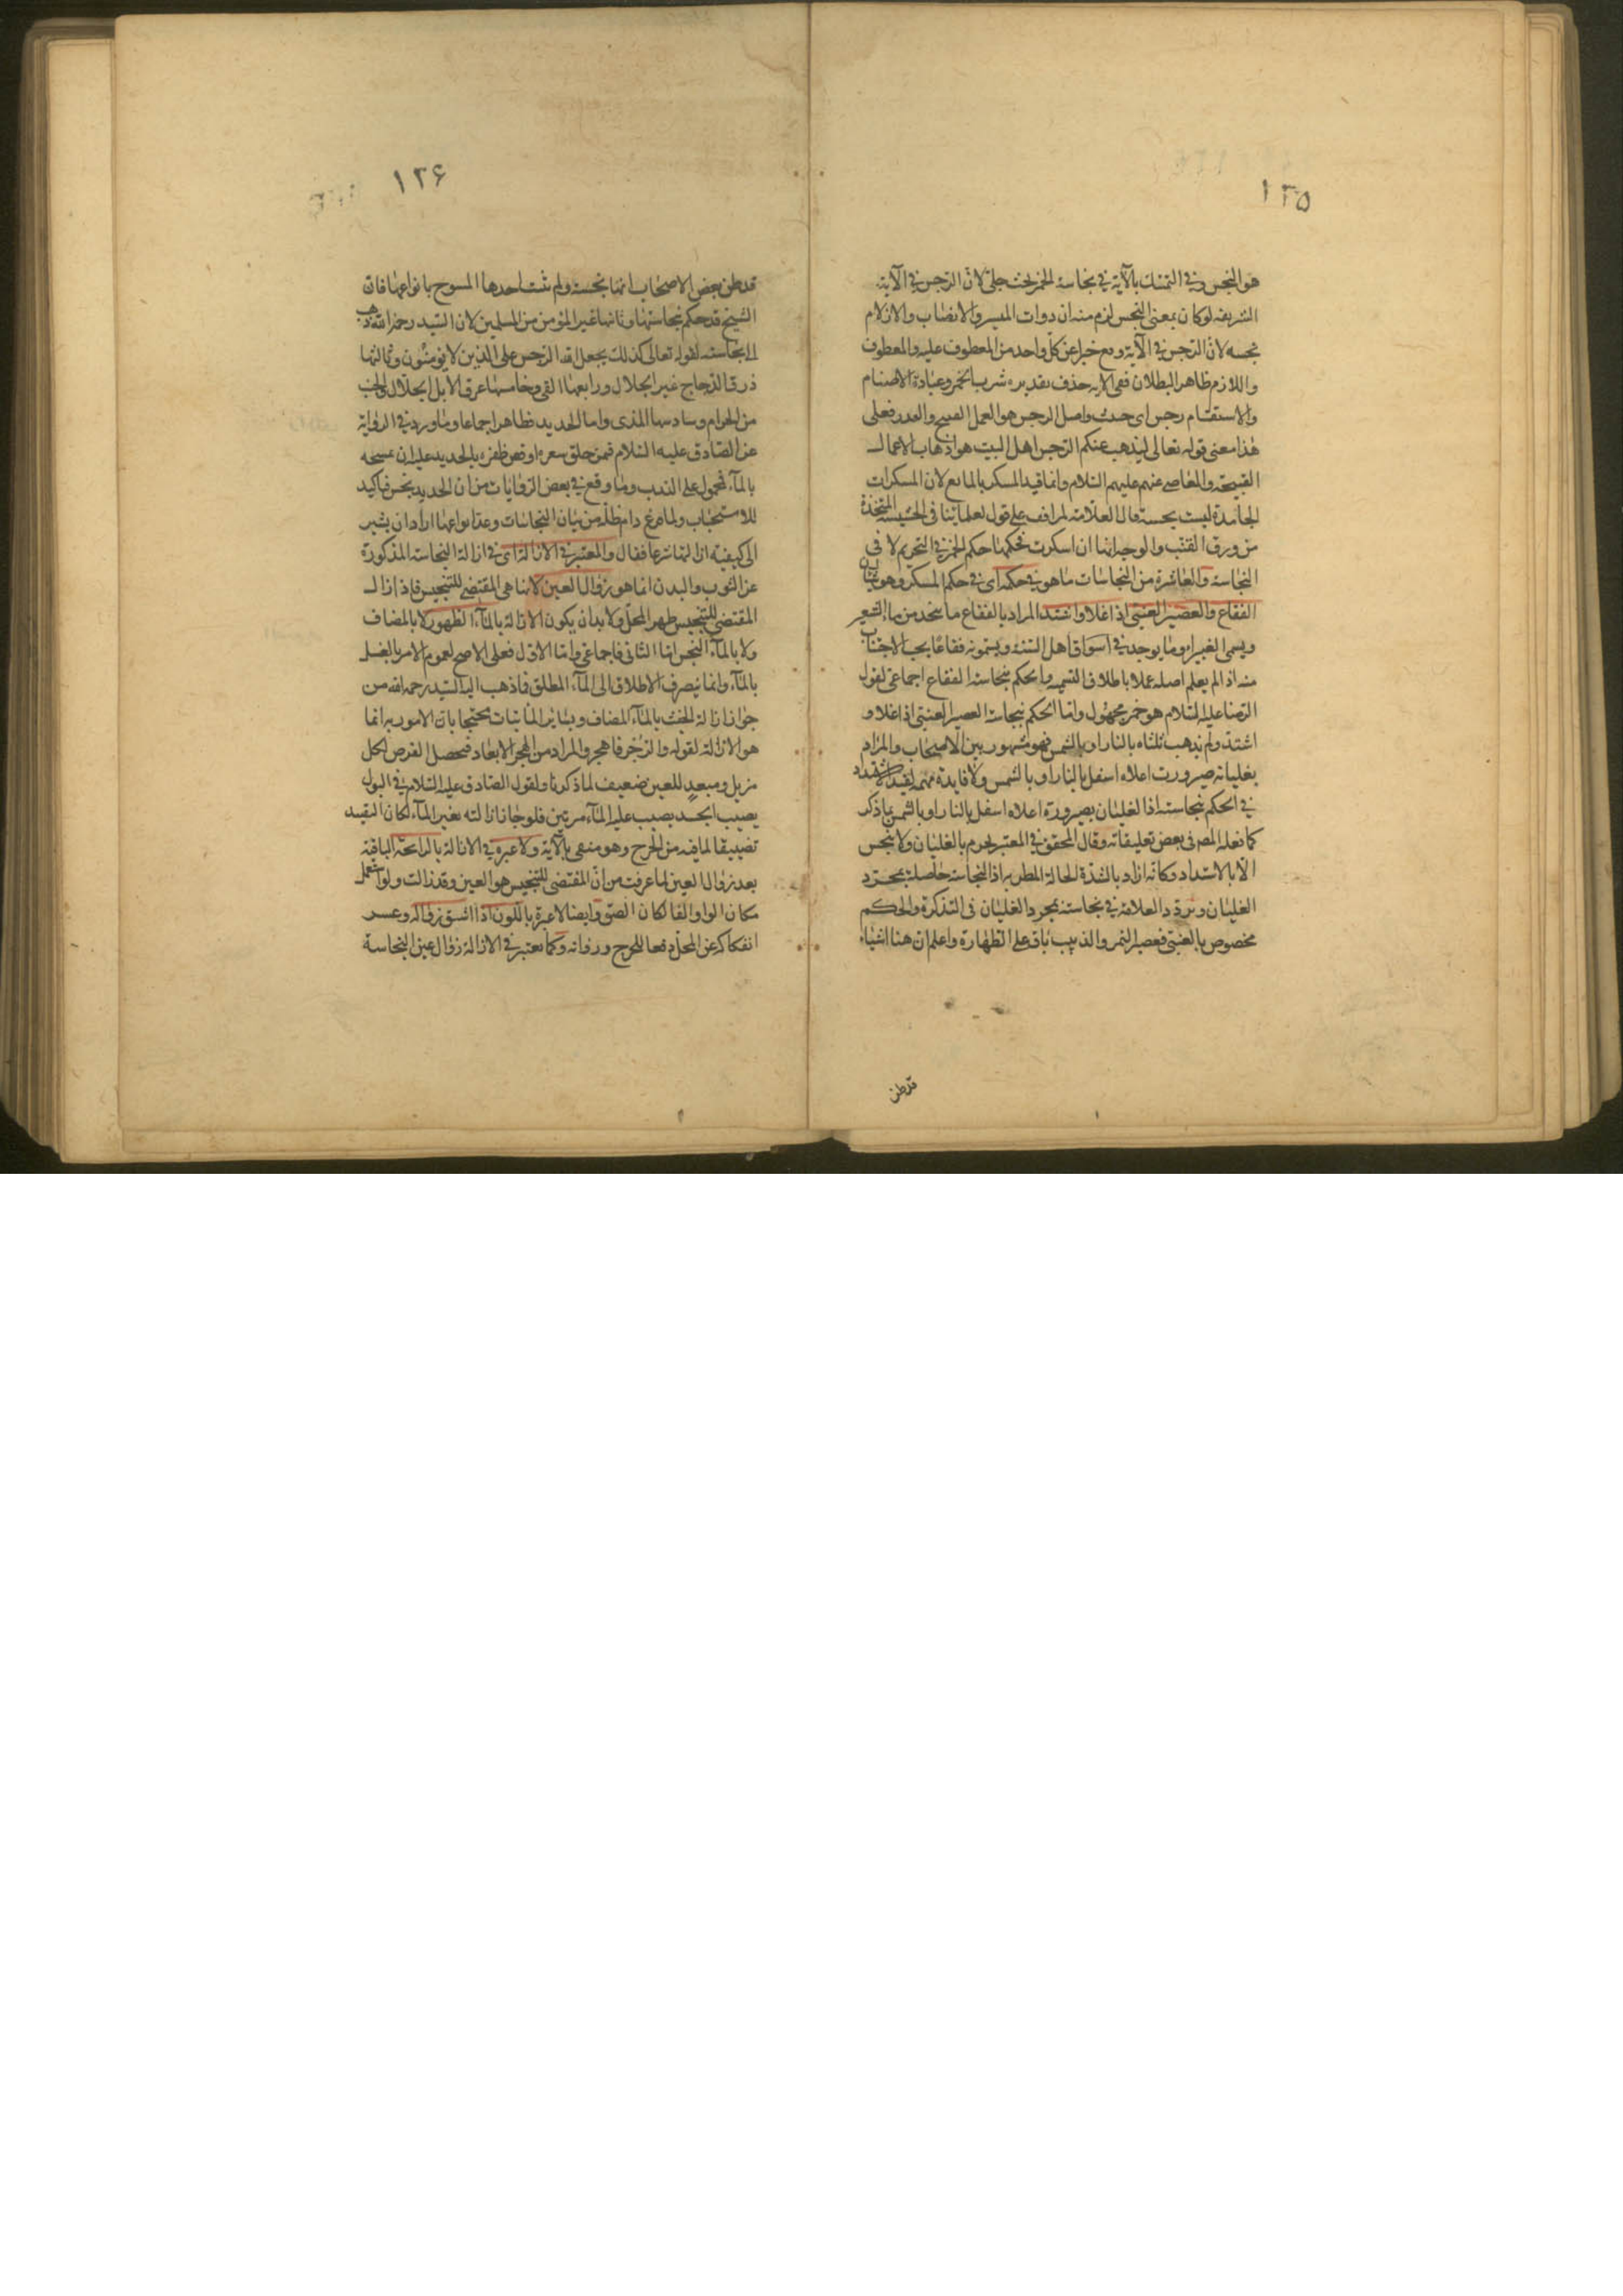 ١٢٥
هو النجس وفي التمسك بالآية في نجاسة الخمر بحث جلي لان الرجس في الآية
الشريفة لو كان بمعنى النجس لزم منه ان ذوات الميسر والانصاب والازلام
نجسه لان الرجس في الآية وقع خبرا عن كل واحد من المعطوف عليه والمعطوف
واللازم ظاهر البطلان ففي الايه حذف تقديره شرب الخمر وعبادة الاصنام
والاستقسام رجس اي خبث واصل الرجس هو العمل القبيح والقذر فعلى
هذا معنى قوله تعالى ليذهب عنكم الرجس اهل البيت هو اذهاب الاعمال
القبيحة والمعاصي عنهم عليهم السلام وانما قيد المسكر بالمايع لان المسكرات
الجامدة ليست بنجسة قال العلامة لم اقف على قول لعلمائنا في الحشيشة المتخذة
من ورق القنب والوجه انها ان اسكرت فحكمها حكم الخمر في التحريم لا في
النجاسة والعاشرة من النجاسات ما هو في حكمه اي في حكم المسكر وهو شيئان
الفقاع والعصير العنبي اذا غلا واشتد المراد بالفقاع ما يتخذ من ماء الشعير
ويسمى الغبيراء وما يوجد في اسواق اهل السنة ويسمونه فقاعا يجب الاجتناب
منه اذا لم يعلم اصله عملا باطلاق التسميه والحكم بنجاسة الفقاع اجماعي لقول
الرضا عليه السلام هو خمر مجهول واما الحكم بنجاسة العصير العنبي اذا غلا و
اشتد ولم يذهب ثلثاه بالنار او بالشمس فهو مشهور بين الاصحاب والمراد
بغليانه صيرورت اعلاه اسفل بالنار او بالشمس ولا فايدة مهمه لقيد الاشتداد
في الحكم بنجاسته اذا لغليان بصيرورة اعلاه اسفل بالنار او بالشمس ما ذكر
كما نقله المصر في بعض تعليقاته وقال المحقق في المعتبر يحرم بالغليان ولا ينجس
الا بالاشتداد وكانه اراد بالشدة الحالة المطربه اذا لنجاسة حاصلة بمجرد
الغليان وتردد العلامة في نجاسته بمجرد الغليان في التذكرة والحكم
مخصوص بالعنبي فعصير التمر والذبيب باق على الطهارة واعلم ان هنا اشياء
قد ظن
١٢۶
قد ظن بعض الاصحاب انها نجسة ولم تثبت احدها المسوخ بانواعها فان
الشيخ قد حكم بنجاستها وثانيها غير المؤمن من المسلمين لان السيد رحمه الله ذهب
الى نجاسته لقوله تعالى كذلك يجعل الله الرجس على الذين لا يؤمنون وثالثها
ذرق الدجاج غير الجلال ورابعها القي وخامسها عرق الابل الجلال والجنب
من الحرام وسادسها المذى واما الحديد فطاهر اجماعا وما ورد في الرواية
عن الصادق عليه السلام فمن حلق شعره او قص ظفره بالحديد عليه ان يمسحه
بالماء فمحمول على الندب وما وقع في بعض الروايات من ان الحديد نجس فتاكيد
للاستحباب ولما فرغ دام ظله من بيان النجاسات وعد انواعها اراد ان يشير
الى كيفيه ازالتها شرعا فقال والمعتبر في الازالة اي في ازالة النجاسة المذكورة
عن الثوب والبدن انما هو زوال العين لانها هي المقتضي للتنجيس فاذا زال
المقتضي للتنجيس طهر المحل ولا بد ان يكون الازالة بالماء الطهور لا بالمضاف
ولا بالماء النجس اما الثاني فاجماعي واما الاول فعلى الاصح لعموم الامر بالغسل
بالماء وانما ينصرف الاطلاق الى الماء المطلق فاذهب اليه السيد رحمه الله من
جواز ازالة الخبث بالماء المضاف وبساير المايعات محتجا بان الامور به انما
هو الازالة لقوله والرجز فاهجر والمراد من الهجر الابعاد فيحصل الغرض بكل
مزيل ومبعد للعين ضعيف لما ذكرنا ولقول الصادق عليه السلام في البول
يصيب الجسد يصيب عليه الماء مرتين فلو جاز ازالته بغير الماء لكان التقييد
تضييقا لما فيه من الحرج وهو منفي بالآية ولا عبرة في الازالة بالرايحة الباقية
بعد زوال العين لما عرفت من ان المقتضي للتنجيس هو العين وقد زالت ولو استعمل
مكان الواو الفا لكان الصق وايضا لا عبرة باللون اذا شق زواله وعسر
انفكاكه عن المحل دفعا للحرج وروايه وكما يعتبر في الازالة زوال عين النجاسة